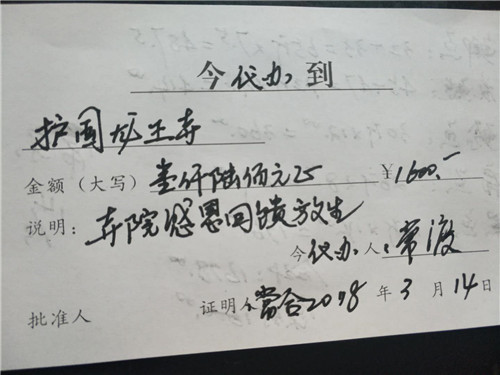 今代办到
护国龙王寺
金额（大写）壹仟陆佰元正 ¥1600.-
说明：寺院感恩回馈放生
今代办人：常渡
批准人 证明人 常合 2018年3月14日